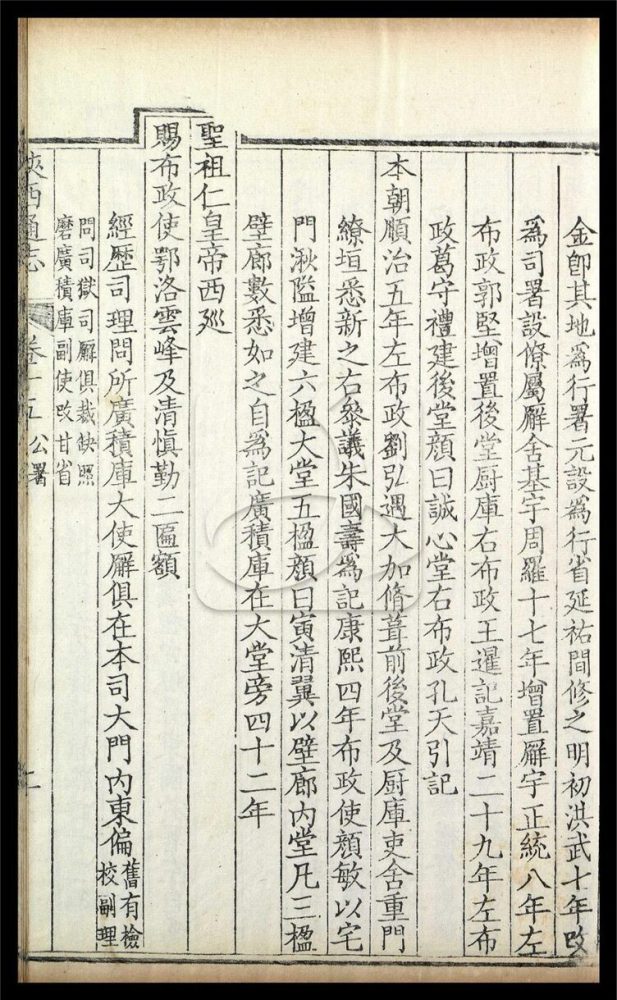 金卽其地為行署元設為行省延祐間修之明初洪武十年改
為司署設僚屬廨舍基宇周羅十七年增置廨宇正統八年左
布政郭堅增置後堂厨庫右布政王暹記嘉靖二十九年左布
政葛守禮建後堂顔曰誠心堂右布政孔天引記
本朝順治五年左布政劉弘遇大加脩葺前後堂及厨庫吏舍重門
繚垣悉新之右叅議朱國壽為記康熙四年布政使顔敏以宅
門湫隘增建六楹大堂五楹顔曰寅清翼以壁廊内堂凡三楹
壁廊數悉如之自為記廣積庫在大堂旁四十二年
聖祖仁皇帝西廵
賜布政使鄂洛雲峰及清慎勤二匾額
經歷司理問所廣積庫大使廨俱在本司大門内東偏舊有檢
校副理
問司獄司廨俱裁缺照
磨廣積庫副使改甘省
陜西通志 卷十五 公署 二